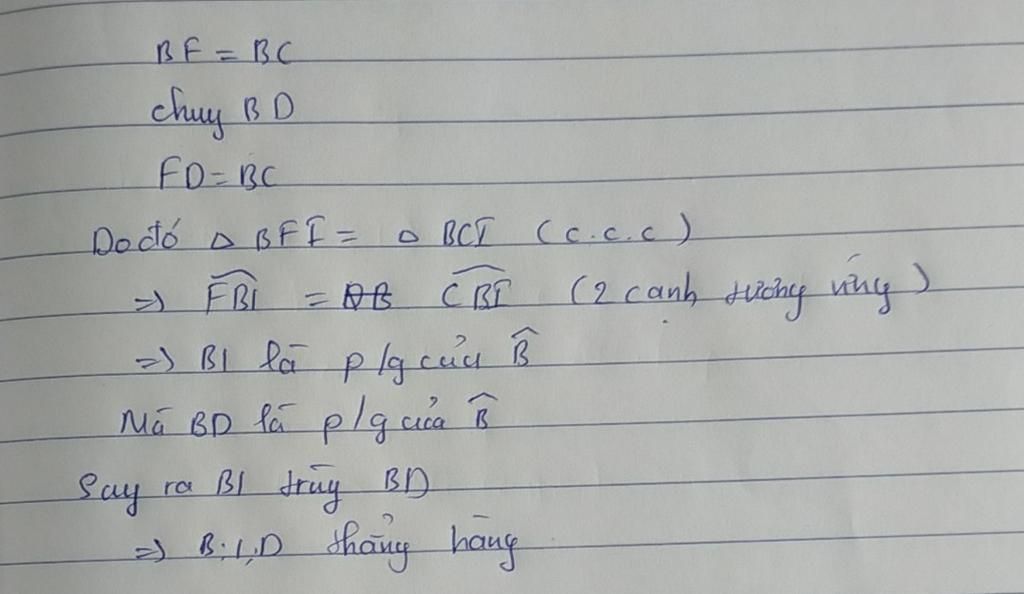 BF = BC
chuy BD
FD = BC
Do đó △ BFI = △ BCI (c.c.c)
=> \widehat{FBI} = \widehat{CBI} (2 canh tương ứng)
=> BI là p/g của \widehat{B}
Mà BD là p/g của \widehat{B}
Say ra BI trùg BD
=> B,I,D thẳng hàng